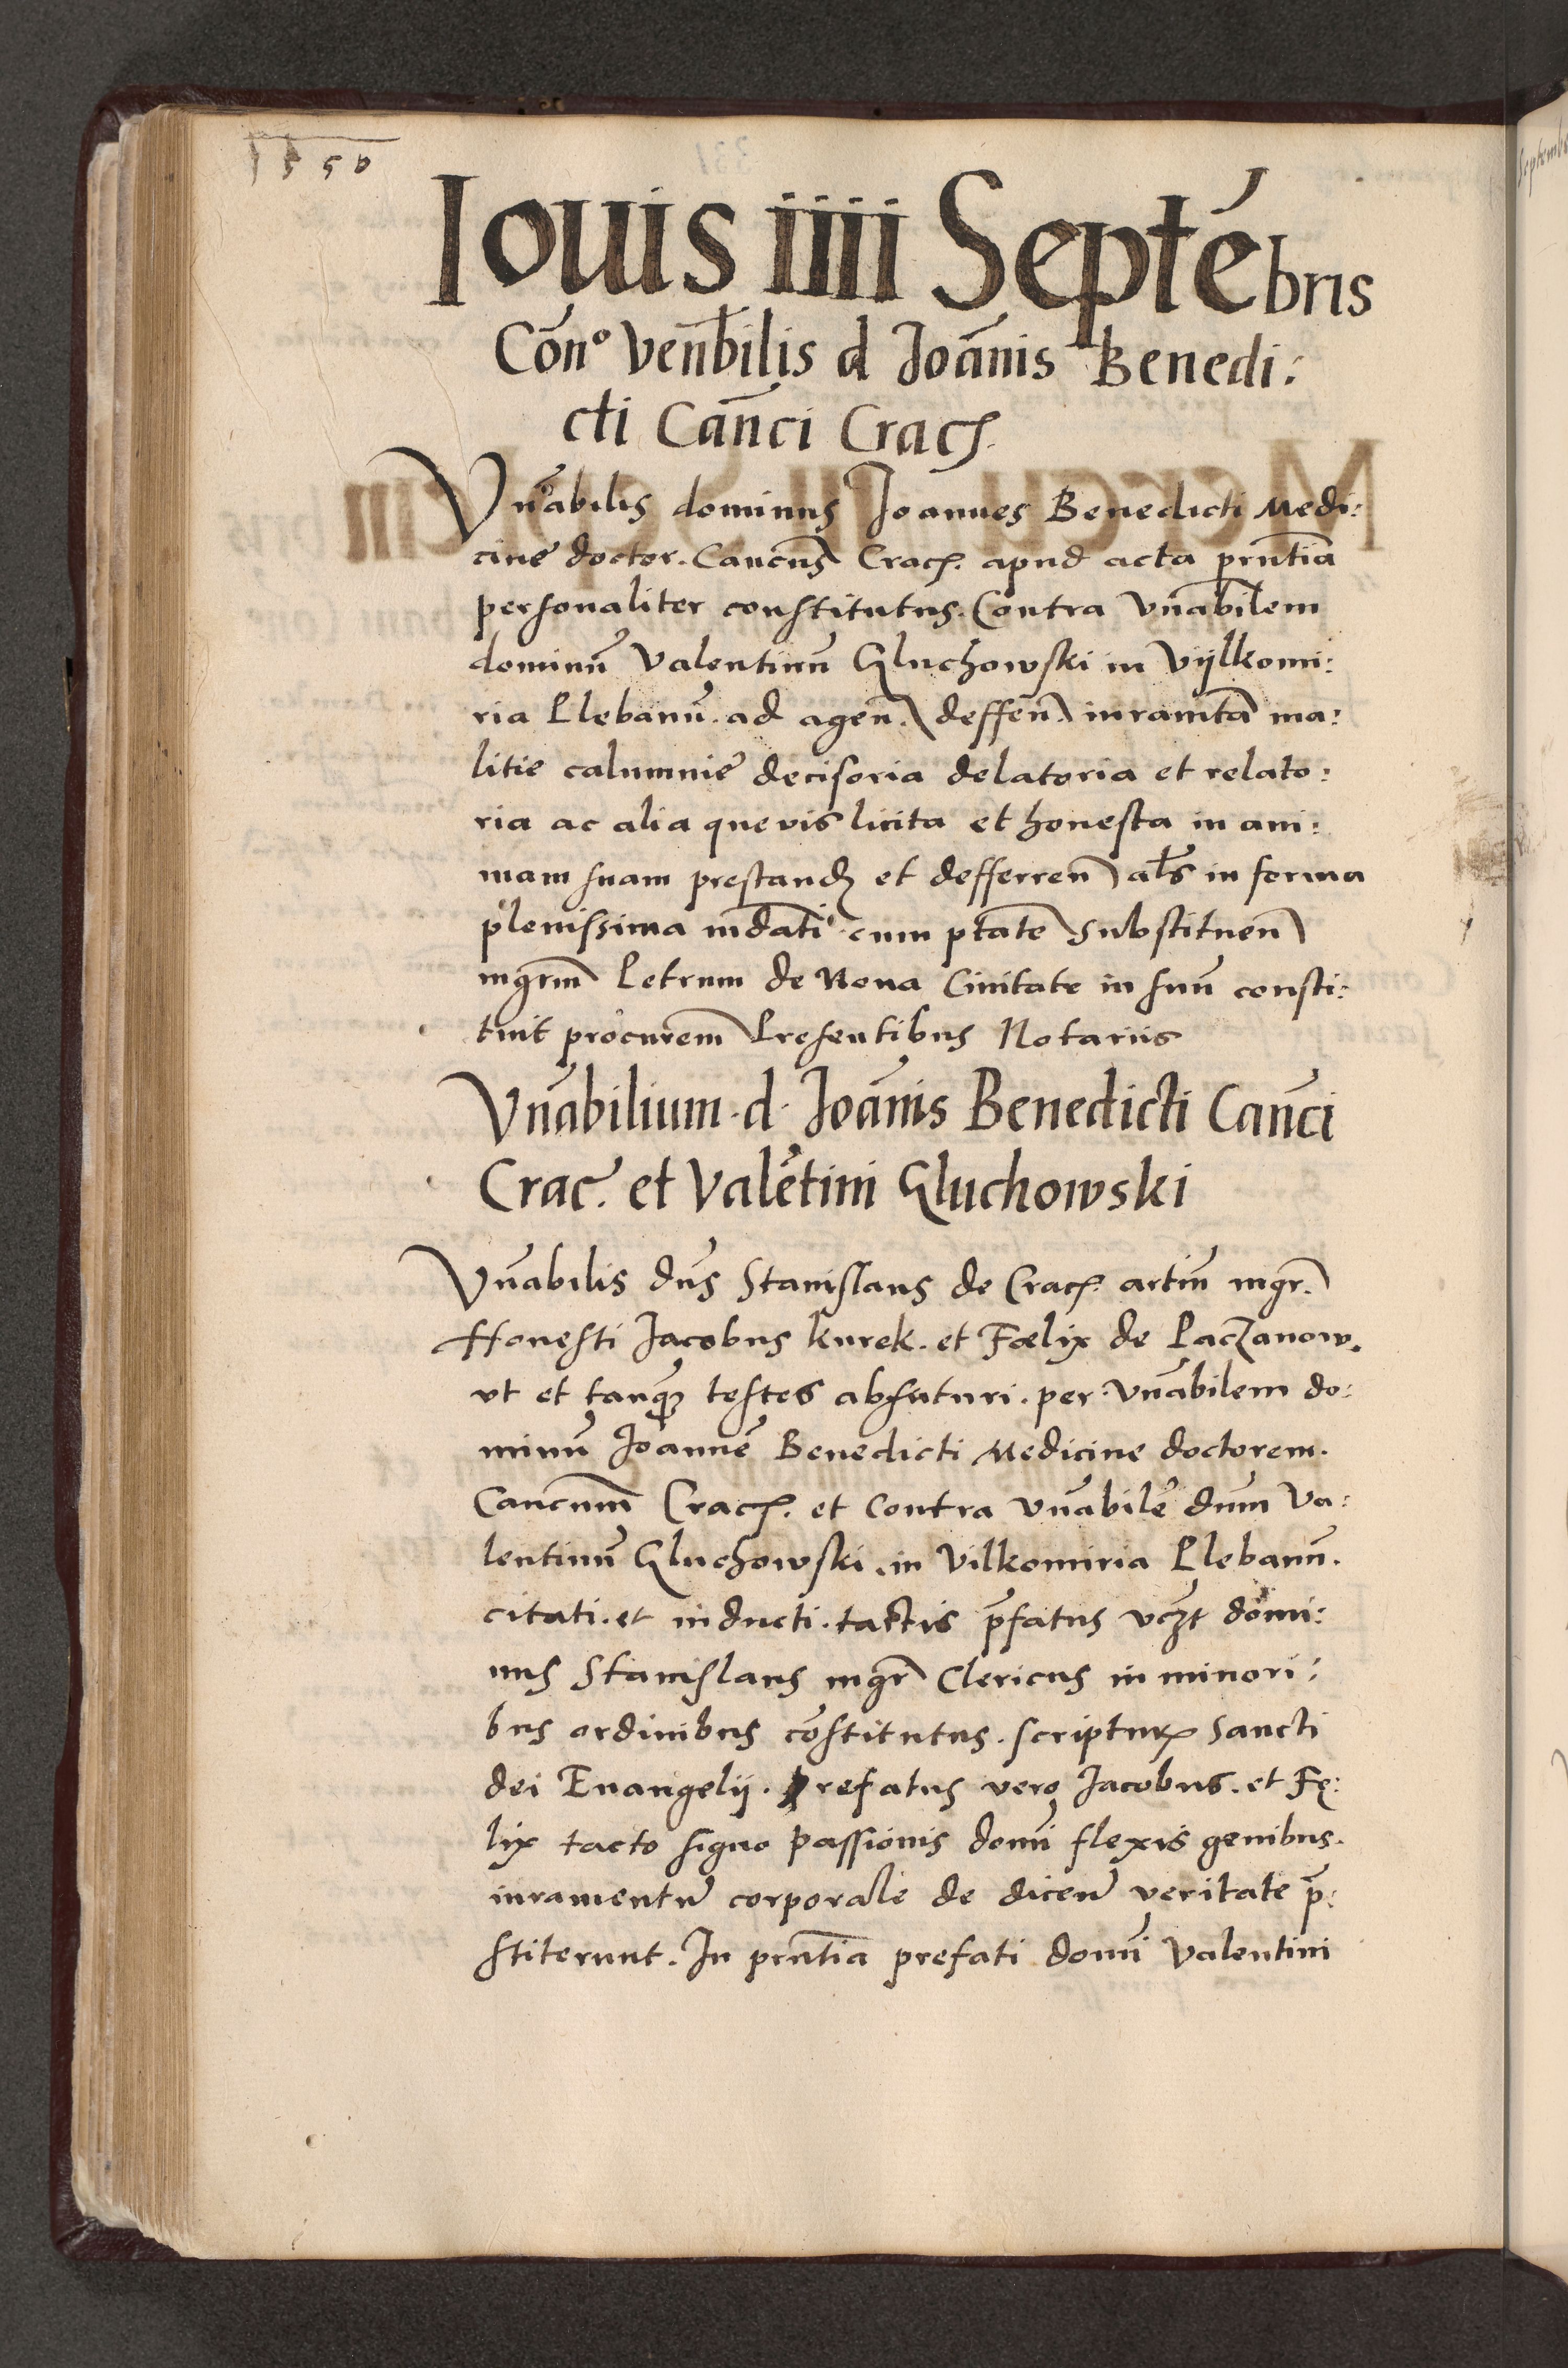 1550
Iouis iiii Septēbris
Cōnº Venb̄ilis d Joānis Benedi:
cti Cañci Crac̄
Vn̄abilis dominus Joannes Benedicti Medi:
cine doctor. Cancus Crac̄. apud acta prn̄tia
personaliter constitutus. Contra Vn̄abilem
dominū Valentinū Gluchowski in Vÿlkomi:
ria Plebanū. ad agen̄. deffen̄. iuramt̄a ma:
litie calumnie decisoria delatoria et relato:
ria ac alia quevis licita et honesta in ani:
mam suam prestand et defferren̄ als̄ in forma
plenissima md̄ati cum ptāte Substituen̄
mgrm̄ Petrum de Nova Civitate in suū consti:
tuit procurem̄ Presentibus Notariis
Vn̄abilium. d. Joānis Benedicti Cañci
Crac̄. et Valētini Gluchowski
Vn̄abilis dn̄s Stanislaus de Crac̄. artiū mgr̄.
Honesti Jacobus kurek. et Fœlix de Paczanow.
vt et tanq̄ testes absuturi. per. Vn̄abilem do:
minū Joannē Benedicti Medicine doctorem.
Cancum̄ Crac̄. et Contra vn̄abilē dūm Va:
lentinū Gluchowski. in Vilkomiria Plebanū.
citati. et inducti. tactis p̄fatus vczt domi:
nus Stanislaus mgr̄ Clericus in minori:
bus ordinibus cōstitutus. scripturꝝ Sancti
dei Euangelij. Prefatus vero Jacobus. et Fę:
lix tacto signo passionis domī flexis genibus.
iuramentū corporale de dicen̄ veritate p̄:
stiterunt. In prn̄tia prefati domī Valentini